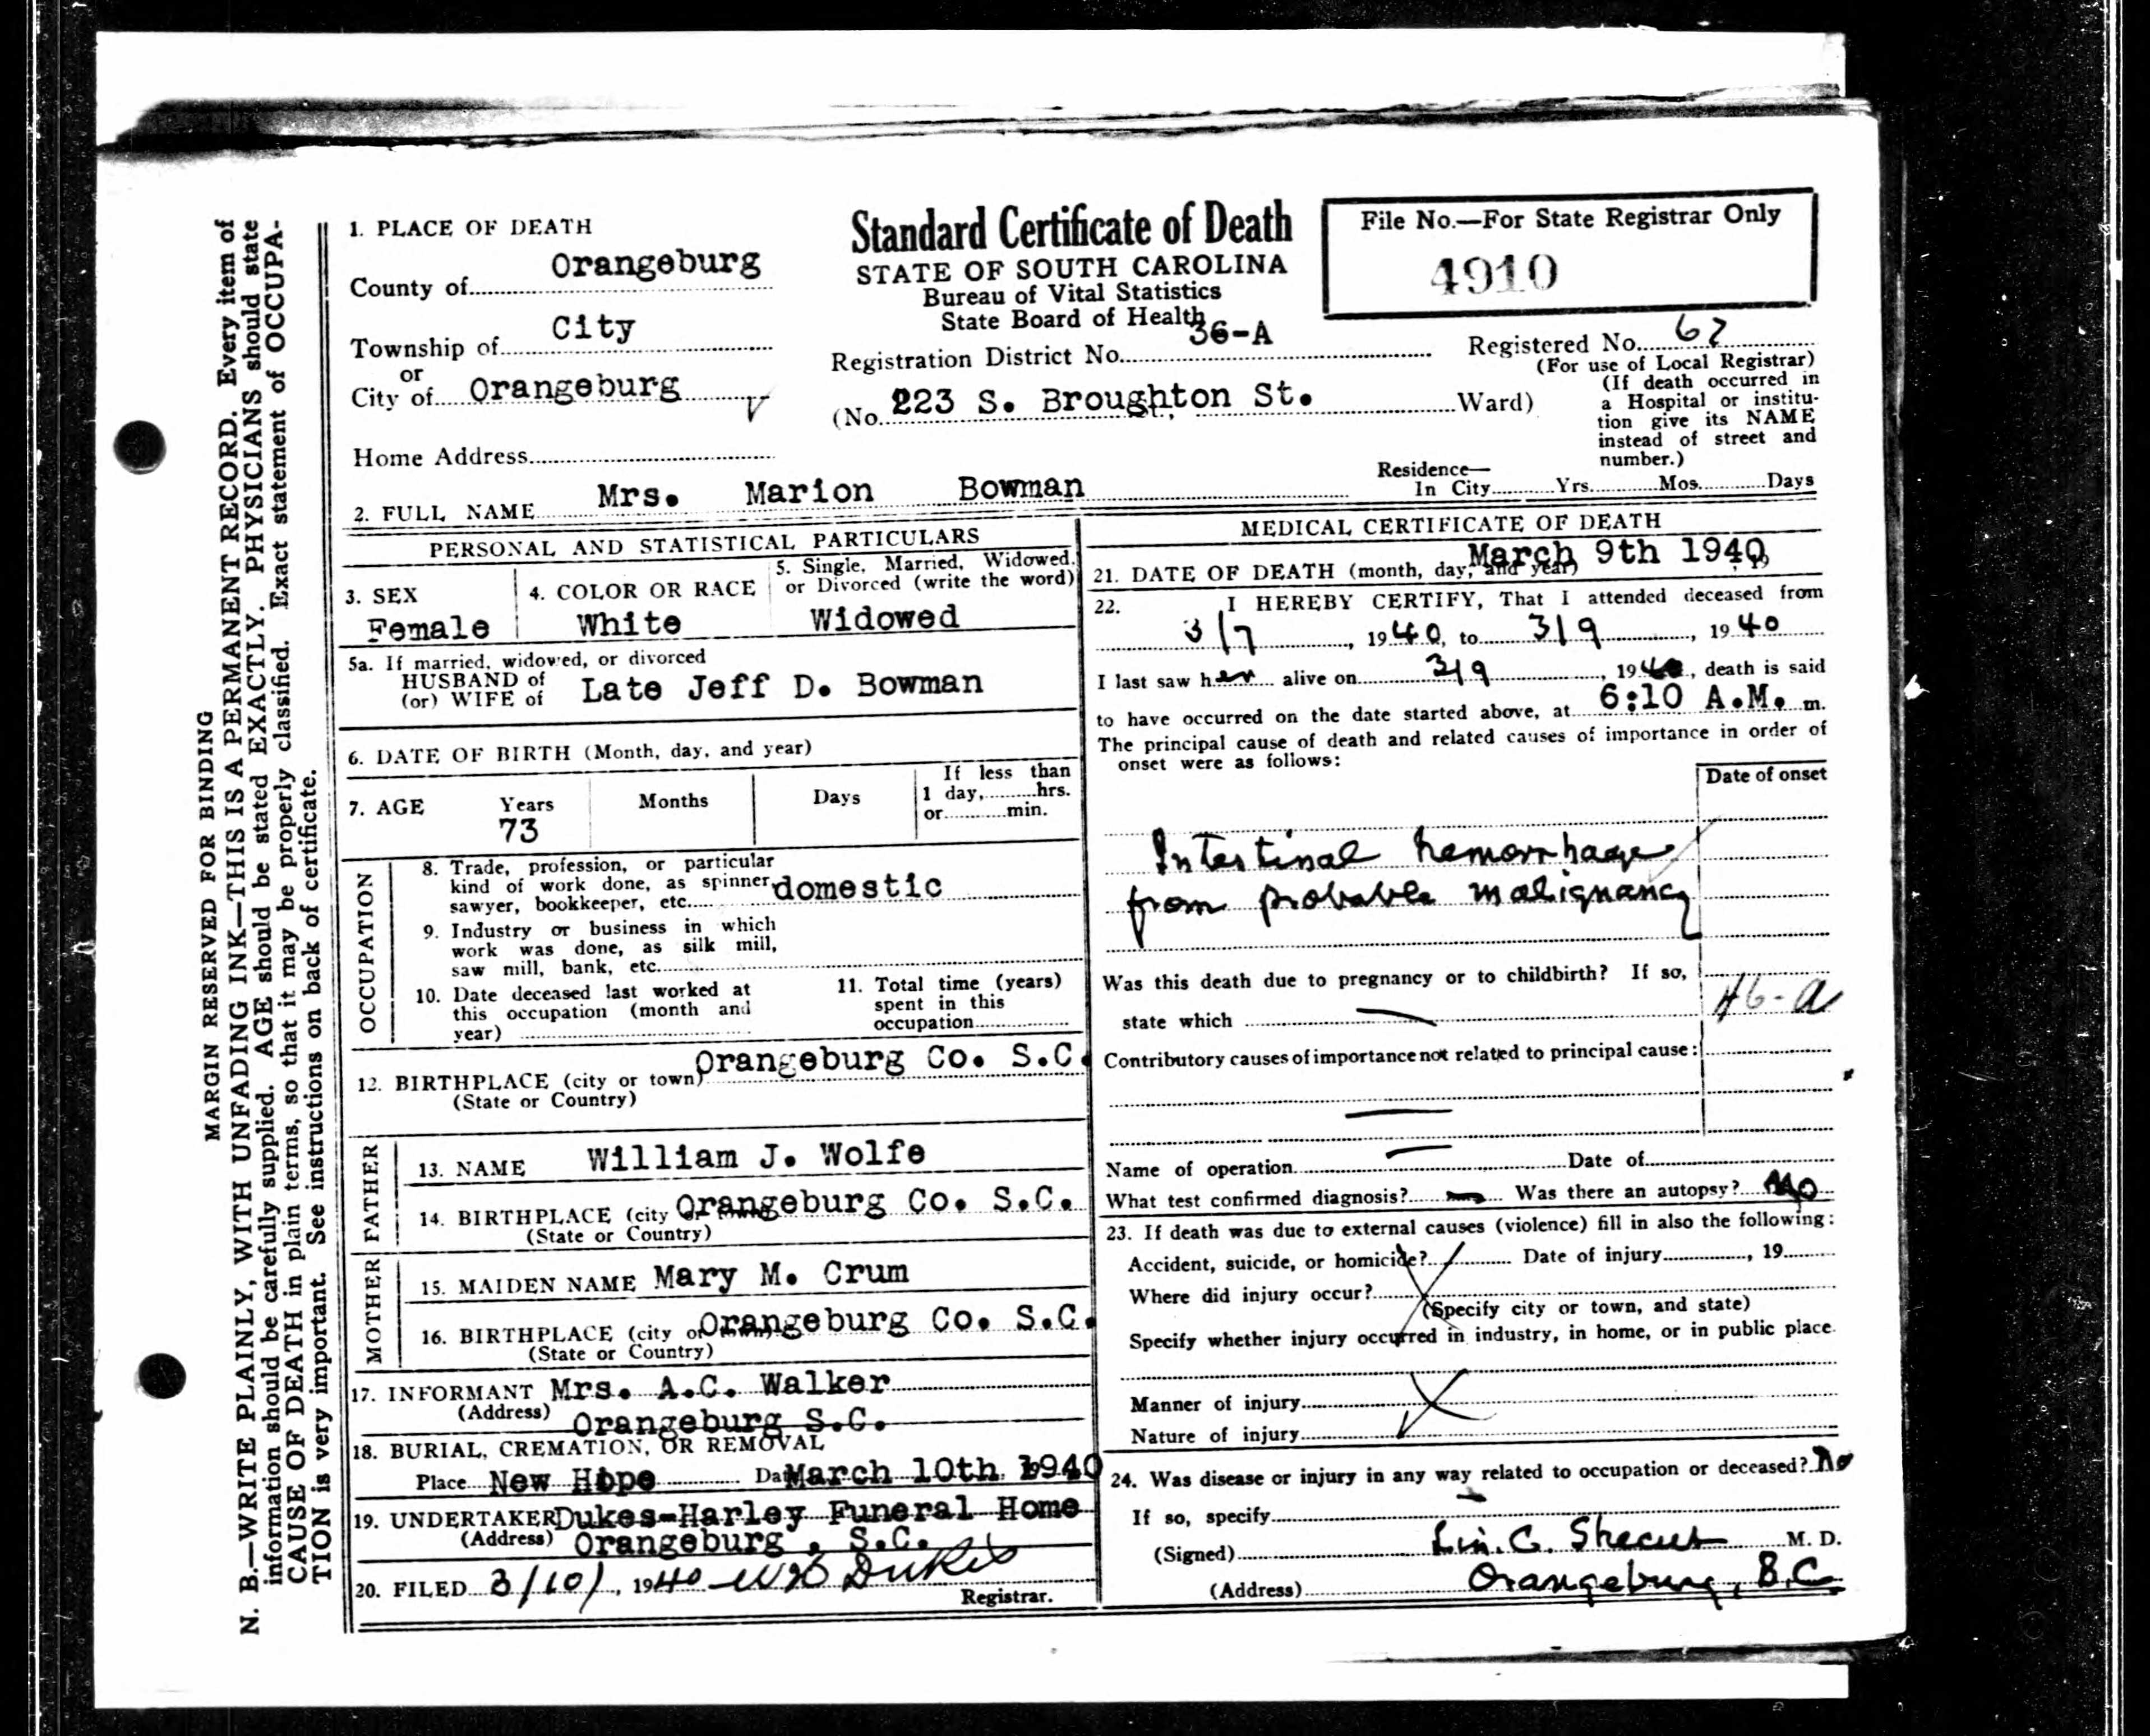 MARGIN RESERVED FOR BINDING
N. B.—WRITE PLAINLY, WITH UNFADING INK—THIS IS A PERMANENT RECORD. Every item of
information should be carefully supplied. AGE should be stated EXACTLY. PHYSICIANS should state
CAUSE OF DEATH in plain terms, so that it may be properly classified. Exact statement of OCCUPA-
TION is very important. See instructions on back of certificate.
Standard Certificate of Death
STATE OF SOUTH CAROLINA
Bureau of Vital Statistics
State Board of Health
File No.—For State Registrar Only
4910
1. PLACE OF DEATH
County of Orangeburg
Township of City
or
City of Orangeburg
Home Address
Registration District No. 36-A
Registered No. 67
(For use of Local Registrar)
(No. 223 S. Broughton St. Ward)
(If death occurred in
a Hospital or institu-
tion give its NAME
instead of street and
number.)
2. FULL NAME Mrs. Marion Bowman
Residence—
In City Yrs. Mos. Days
PERSONAL AND STATISTICAL PARTICULARS
3. SEX
Female
4. COLOR OR RACE
White
5. Single, Married, Widowed,
or Divorced (write the word)
Widowed
5a. If married, widowed, or divorced
HUSBAND of
(or) WIFE of Late Jeff D. Bowman
6. DATE OF BIRTH (Month, day, and year)
7. AGE Years Months Days
73
If less than
1 day, hrs.
or min.
OCCUPATION
8. Trade, profession, or particular
kind of work done, as spinner,
sawyer, bookkeeper, etc. domestic
9. Industry or business in which
work was done, as silk mill,
saw mill, bank, etc.
10. Date deceased last worked at
this occupation (month and
year)
11. Total time (years)
spent in this
occupation
12. BIRTHPLACE (city or town) Orangeburg Co. S.C.
(State or Country)
FATHER
13. NAME William J. Wolfe
14. BIRTHPLACE (city or town) Orangeburg Co. S.C.
(State or Country)
MOTHER
15. MAIDEN NAME Mary M. Crum
16. BIRTHPLACE (city or town) Orangeburg Co. S.C.
(State or Country)
17. INFORMANT Mrs. A.C. Walker
(Address) Orangeburg S.C.
18. BURIAL, CREMATION, OR REMOVAL
Place New Hope Date March 10th 1940
19. UNDERTAKER Dukes-Harley Funeral Home
(Address) Orangeburg , S.C.
20. FILED 3/10/, 1940 Dukes
Registrar.
MEDICAL CERTIFICATE OF DEATH
21. DATE OF DEATH (month, day, and year) March 9th 1940
22. I HEREBY CERTIFY, That I attended deceased from
3/7, 1940, to 3/9, 1940
I last saw her alive on 3/9, 1940, death is said
to have occurred on the date started above, at 6:10 A.M. m.
The principal cause of death and related causes of importance in order of
onset were as follows:
Date of onset
Intestinal hemorrhage
from probable malignancy
Was this death due to pregnancy or to childbirth? If so,
state which —
46-a
Contributory causes of importance not related to principal cause:
—
Name of operation — Date of
What test confirmed diagnosis? — Was there an autopsy? No
23. If death was due to external causes (violence) fill in also the following:
Accident, suicide, or homicide? Date of injury, 19
Where did injury occur?
(Specify city or town, and state)
Specify whether injury occurred in industry, in home, or in public place.
Manner of injury
Nature of injury
24. Was disease or injury in any way related to occupation or deceased? No
If so, specify —
(Signed) C. Shecut M. D.
(Address) Orangeburg, S.C.